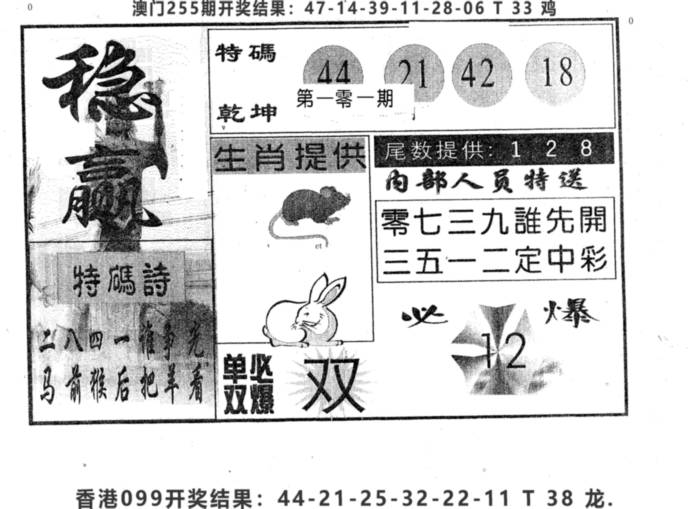 0
澳门255期开奖结果：47-14-39-11-28-06 T 33 鸡
0
稳赢
特碼
乾坤
44 21 42 18
第一零一期
生肖提供
尾数提供: 1 2 8
内部人员特送
零七三九誰先開
三五一二定中彩
特碼詩
二八四一谁争光
马前猴后把羊看
必爆
12
单双
必爆
双
香港099开奖结果：44-21-25-32-22-11 T 38 龙.